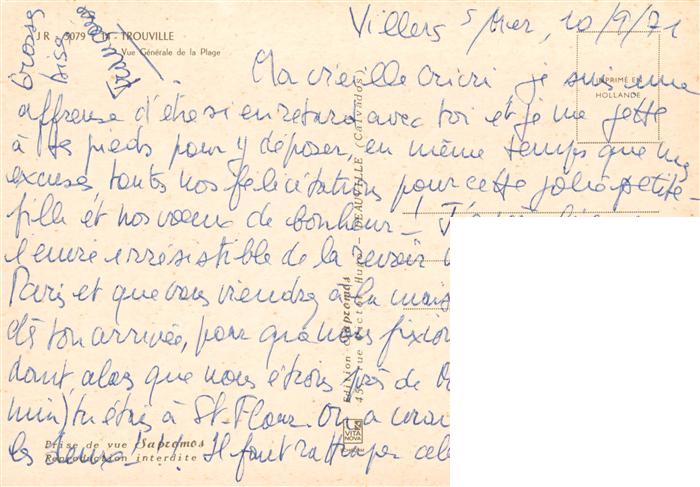 J R 5079 14 - TROUVILLE
Vue Générale de la Plage
IMPRIMÉ EN
HOLLANDE
Villers s/Mer, 10/9/71
Ma vieille Cricri je suis une
affreuse d'être si en retard avec toi et je me jette
à tes pieds pour y déposer, en même temps que mes
excuses toutes nos félicitations pour cette jolie petite-
fille et nos vœux de bonheur !
l'envie irrésistible de la revoir
Paris et que vous viendrez à la mais
dès ton arrivée, pour que nous fixio
dont alors que nous étions près de
min) tu étais à St-Flour. On a
les deux ! Il faut rattraper cel
Grosses
bises
Edition Sapromos
45, rue Victor Hugo - DEAUVILLE (Calvados)
VITA
NOVA
Prise de vue Sapromos
Reproduction interdite